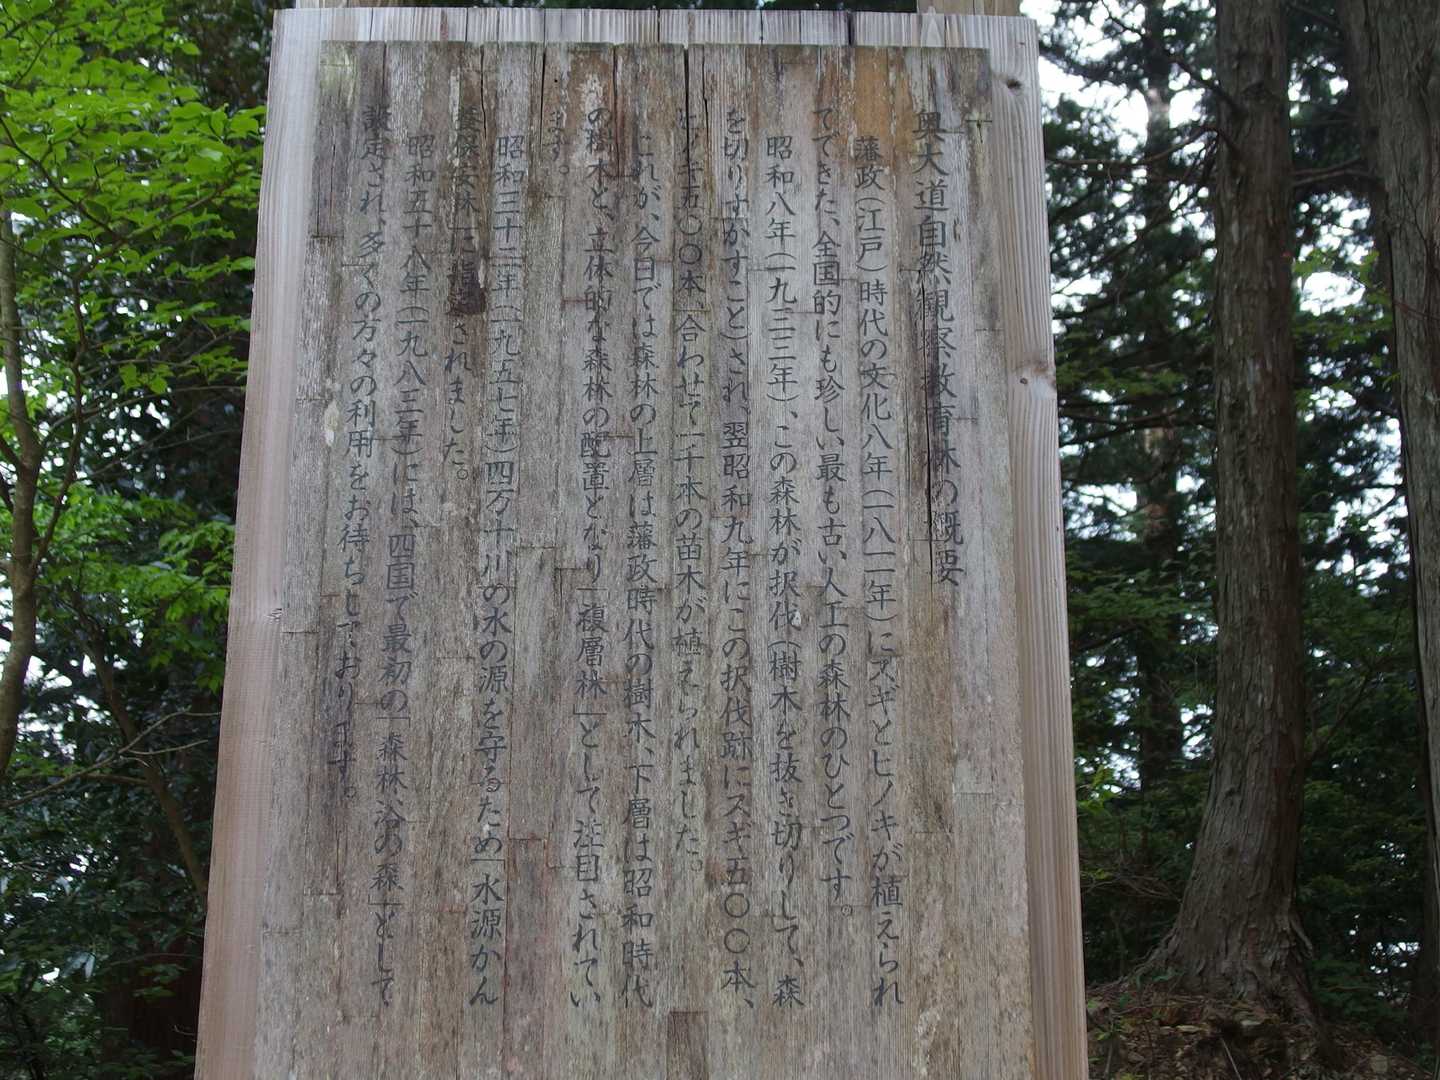 奥大道自然観察教育林の概要
藩政(江戸)時代の文化八年(一八一一年)にスギとヒノキが植えられ
てできた、全国的にも珍しい最も古い人工の森林のひとつです。
昭和八年(一九三三年)、この森林が択伐(樹木を抜き切りして、森
を切りすかすこと)され、翌昭和九年にこの択伐跡にスギ五〇〇本、
ヒノキ五〇〇本「合わせて一千本の苗木が植えられました。
これが、今日では森林の上層は藩政時代の樹木、下層は昭和時代
の樹木と、立体的な森林の配置となり「複層林」として注目されてい
ます。
昭和三十二年(一九五七年)四万十川の水の源を守るため「水源かん
養保安林」に指定されました。
昭和五十八年(一九八三年)には、四国で最初の「森林浴の森」として
設定され、多くの方々の利用をお待ちしております。